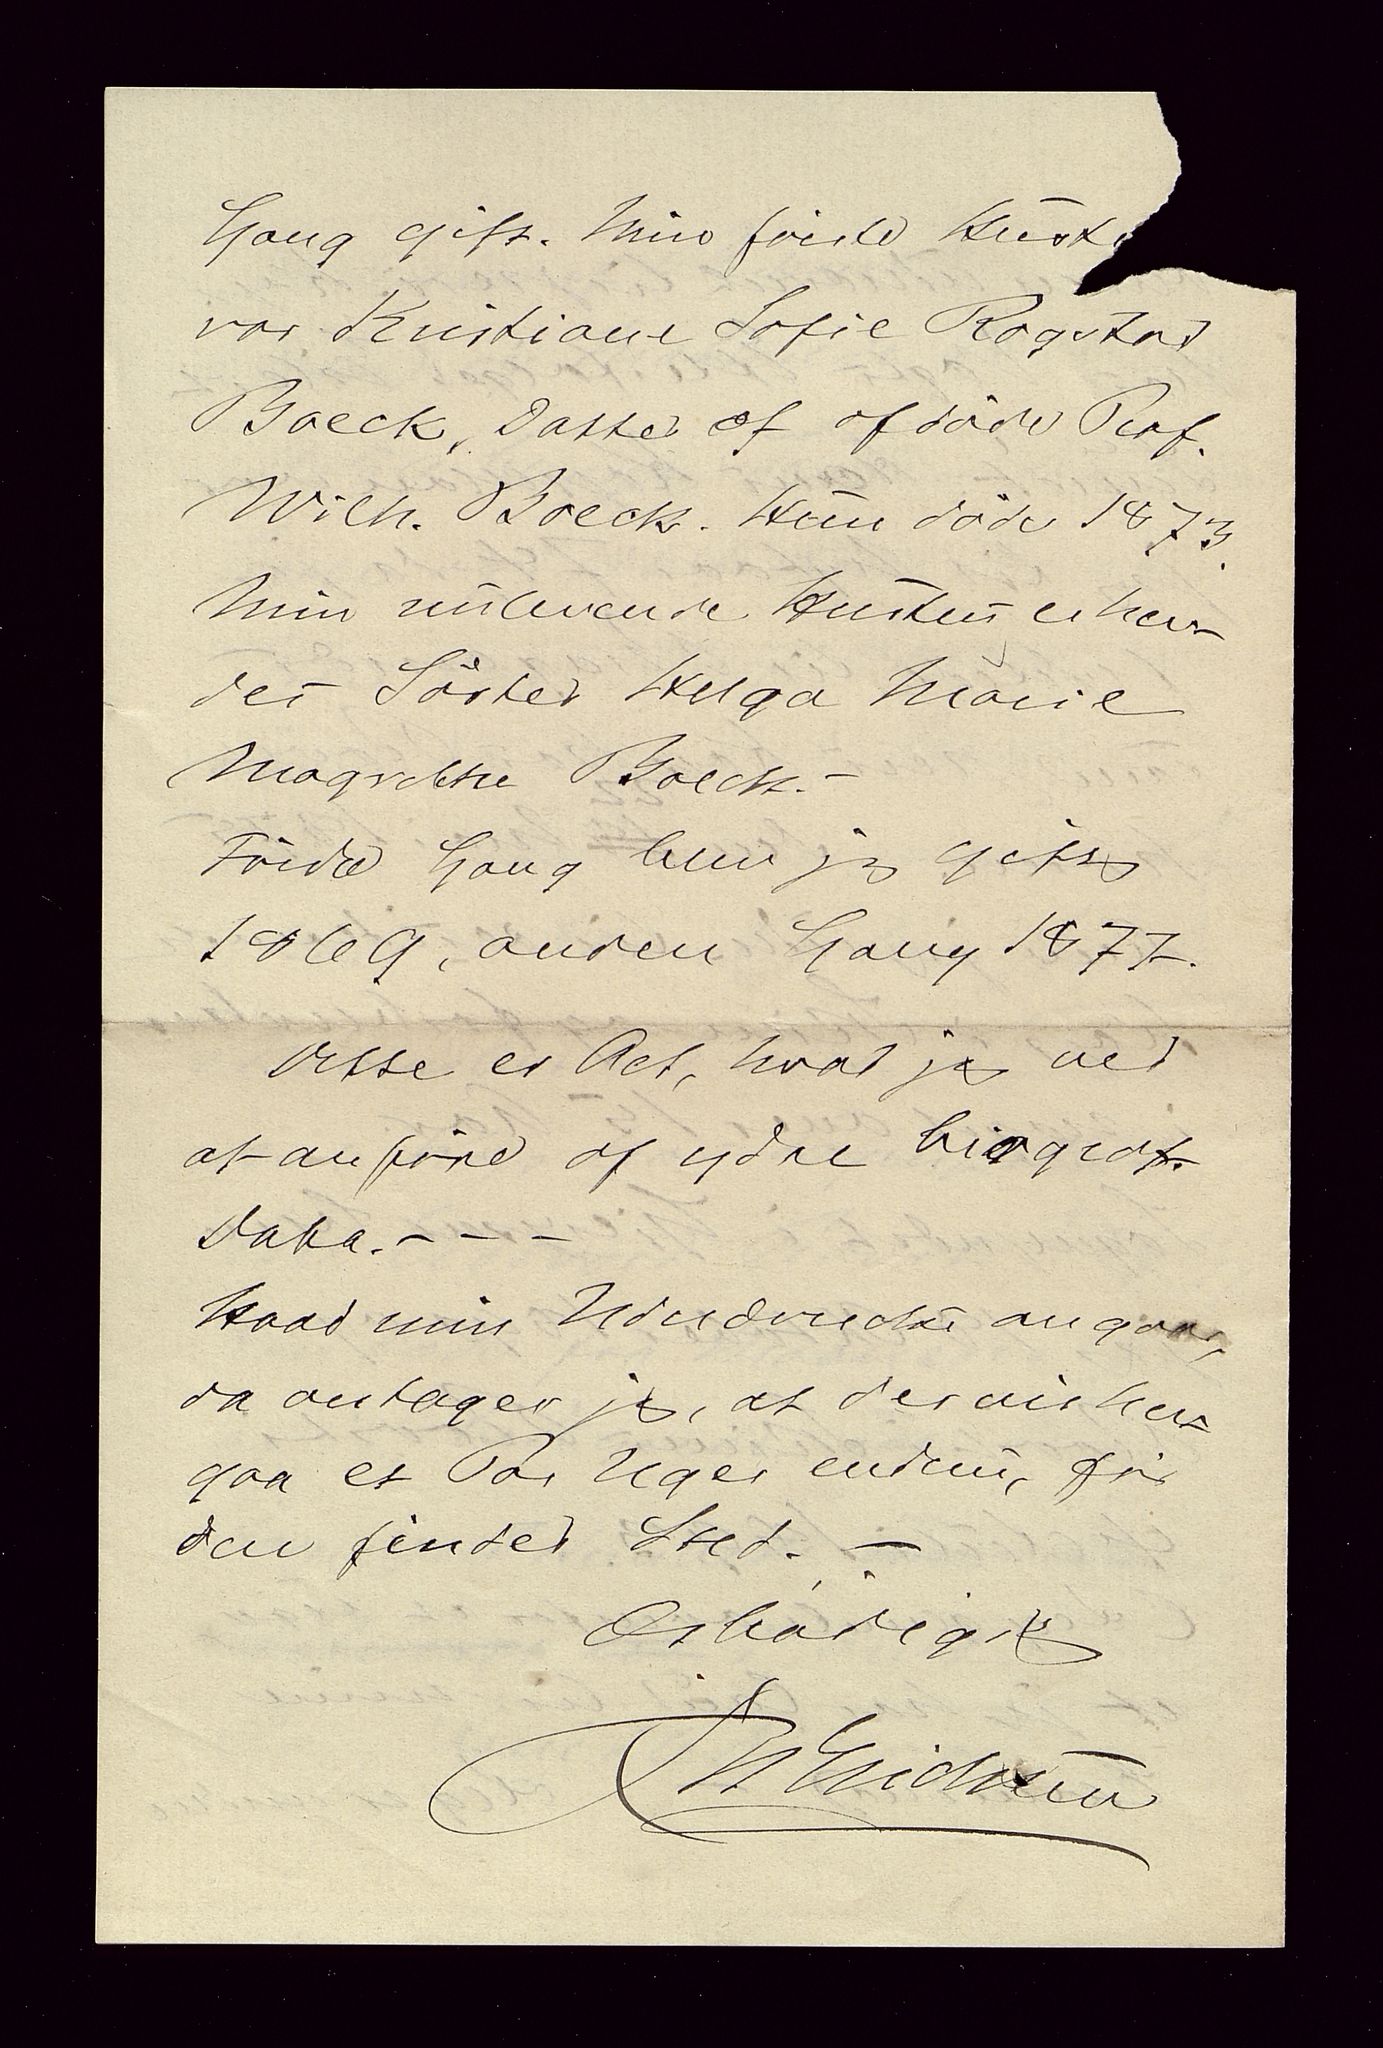 Gang gift. Min første Hustr
var Kristiane Sofie Rogstad
Boeck, Datter af afdøde Prof.
Wilh. Boeck. Hun døde 1873.
Min nulevende Hustru er hen-
des Søster Helga Marie
Magrethe Boeck. -
Første Gang blev jeg gift
1869, anden Gang 1877.
Dette er Alt, hvad jeg ved
at anføre af ydre biograf.
Data. - - -
Hvad min Udnævnelse angaar,
da antager jeg, at der vil hen-
gaa et Par Uger endnu, før
den finder Sted. -
Ærbødigst